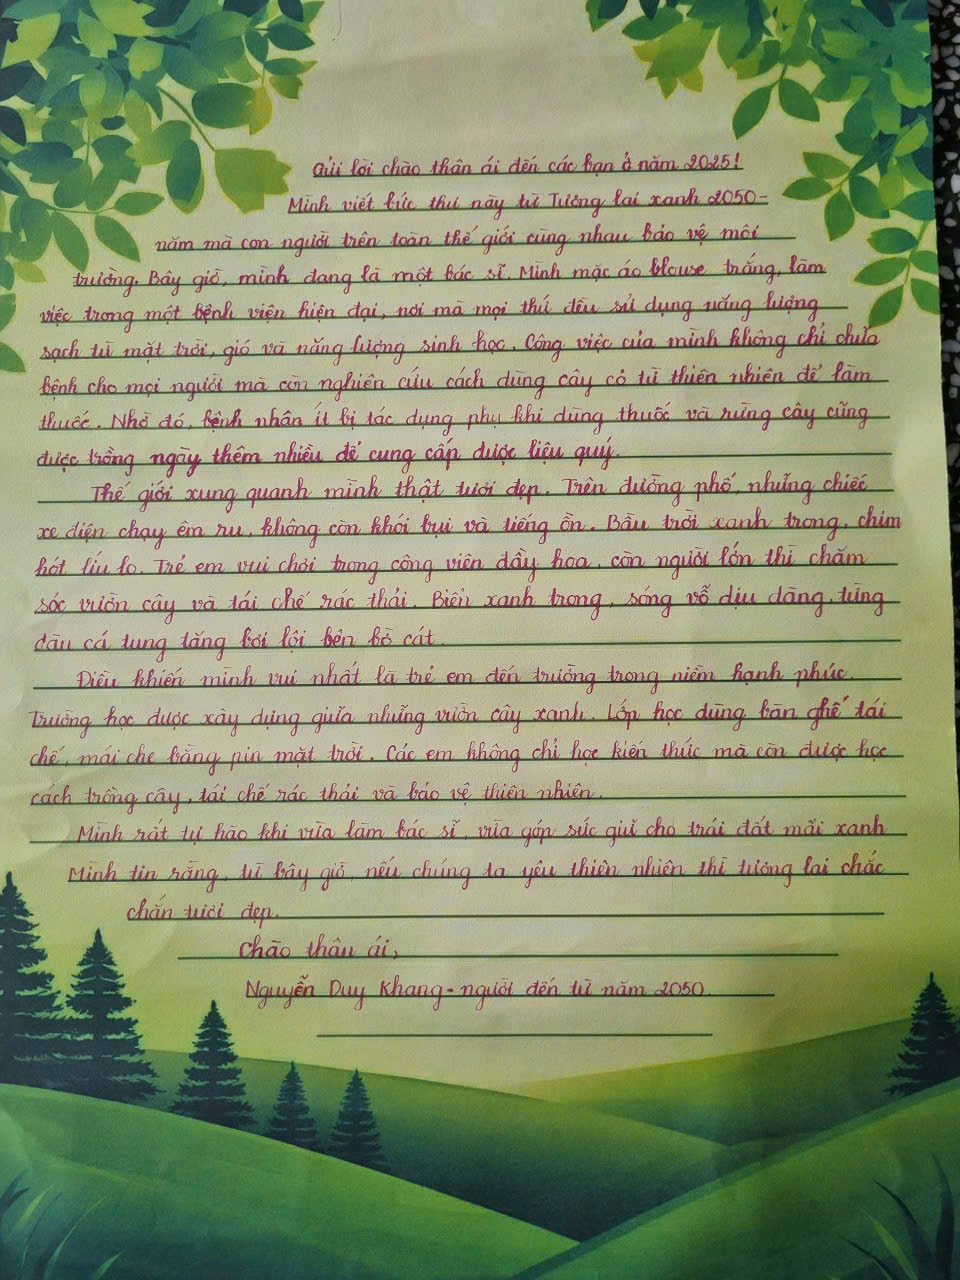 Gửi lời chào thân ái đến các bạn ở năm 2025!
Mình viết bức thư này từ Tương lai xanh 2050-
năm mà con người trên toàn thế giới cùng nhau bảo vệ môi
trường. Bây giờ, mình đang là một bác sĩ. Mình mặc áo blouse trắng, làm
việc trong một bệnh viện hiện đại, nơi mà mọi thứ đều sử dụng năng lượng
sạch từ mặt trời, gió và năng lượng sinh học. Công việc của mình không chỉ chữa
bệnh cho mọi người mà còn nghiên cứu cách dùng cây cỏ từ thiên nhiên để làm
thuốc. Nhờ đó, bệnh nhân ít bị tác dụng phụ khi dùng thuốc và rừng cây cũng
được trồng ngày thêm nhiều để cung cấp dược liệu quý.
Thế giới xung quanh mình thật tươi đẹp. Trên đường phố, những chiếc
xe điện chạy êm ru, không còn khói bụi và tiếng ồn. Bầu trời xanh trong, chim
hót líu lo. Trẻ em vui chơi trong công viên đầy hoa, còn người lớn thì chăm
sóc vườn cây và tái chế rác thải. Biển xanh trong, sóng vỗ dịu dàng, từng
đàn cá tung tăng bơi lội bên bờ cát.
Điều khiến mình vui nhất là trẻ em đến trường trong niềm hạnh phúc.
Trường học được xây dựng giữa những vườn cây xanh. Lớp học dùng bàn ghế tái
chế, mái che bằng pin mặt trời. Các em không chỉ học kiến thức mà còn được học
cách trồng cây, tái chế rác thải và bảo vệ thiên nhiên.
Mình rất tự hào khi vừa làm bác sĩ, vừa góp sức giữ cho trái đất mãi xanh
Mình tin rằng, từ bây giờ, nếu chúng ta yêu thiên nhiên thì tương lai chắc
chắn tươi đẹp.
Chào thân ái,
Nguyễn Duy Khang - người đến từ năm 2050.